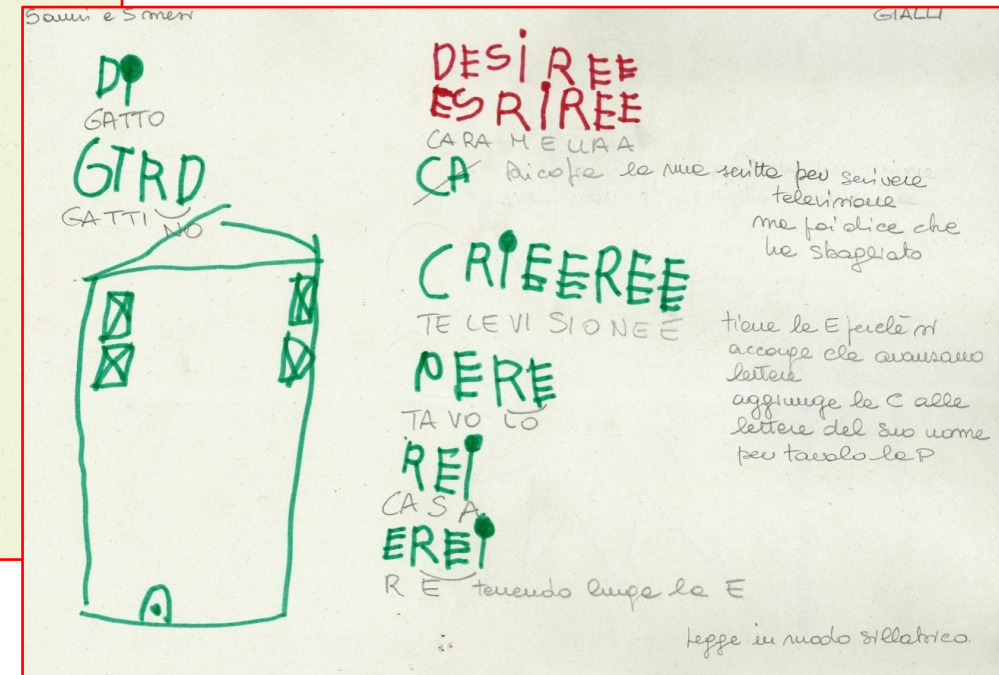 5 anni e 5 mesi
GIALLI
Di
GATTO
GTRD
GATTINO
DESiREE
ESRIREE
CARAMELLAA
CA
ricopia la mia scritta per scrivere
televisione
ma poi dice che
ha sbagliato
CRiEEREE
TELEVISIONEE
tiene le E perché si
accorge che avanzano
lettere
aggiunge la C alle
lettere del suo nome
per tavolo la P
PERE
TAVOLO
REi
CASA
EREi
RE tenendo lunga la E
Legge in modo sillabico.